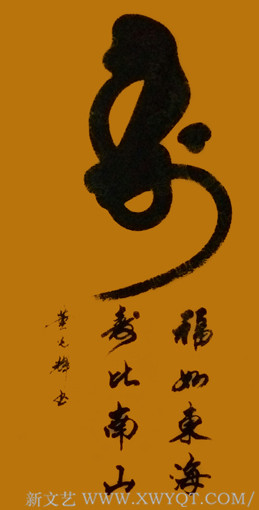 寿
福如東海
寿比南山
新文艺 WWW.XWYQT.COM/